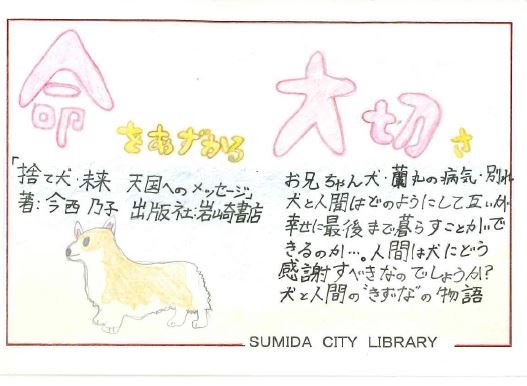 命をあずかる大切さ
「捨て犬・未来　天国へのメッセージ」
著：今西乃子　出版社：岩崎書店
お兄ちゃん犬・蘭丸の病気・別れ
犬と人間はどのようにして互いが
幸せに最後まで暮らすことがで
きるのか…。人間は犬にどう
感謝すべきなのでしょうか？
犬と人間の“きずな”の物語
SUMIDA CITY LIBRARY